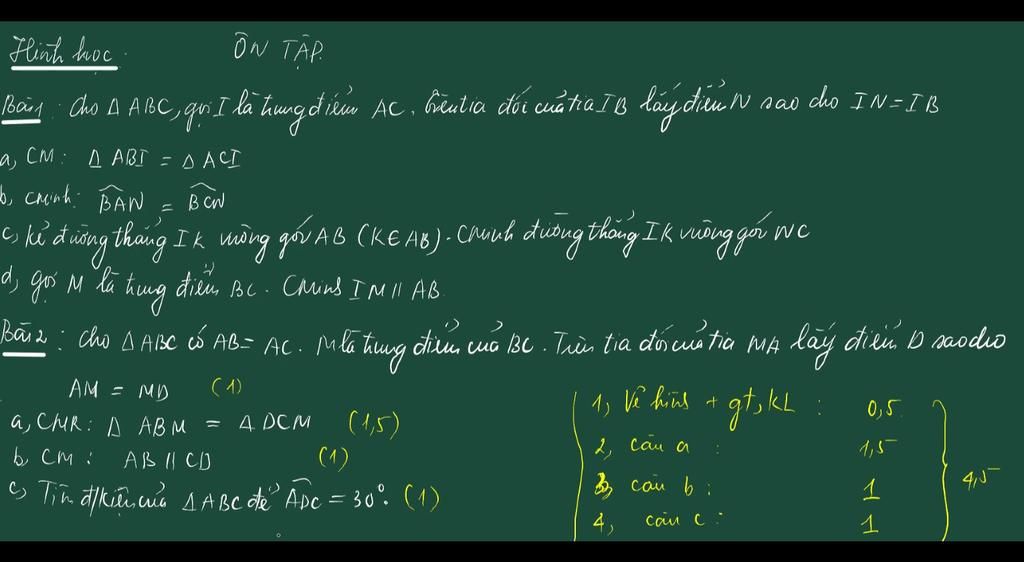 Hình học. ÔN TẬP.
Bài 1: Cho Δ ABC, gọi I là trung điểm AC. Trên tia đối của tia IB lấy điểm N sao cho IN = IB
a, CM: Δ ABI = Δ ACI
b, Cminh: BAN = BCN
c, kẻ đường thẳng IK vuông góc AB (K ∈ AB). Cminh đường thẳng IK vuông góc NC
d, gọi M là trung điểm BC. Cminh IM // AB.
Bài 2: Cho Δ ABC có AB = AC. M là trung điểm của BC. Trên tia đối của tia MA lấy điểm D sao cho
AM = MD (1)
a, CMR: Δ ABM = Δ DCM (1,5)
b, CM: AB // CD (1)
c, Tìm đ/kiện của Δ ABC để ADC = 30°. (1)
1, Vẽ hình + gt, KL: 0,5
2, câu a: 1,5
3, câu b: 1
4, câu c: 1
4,5